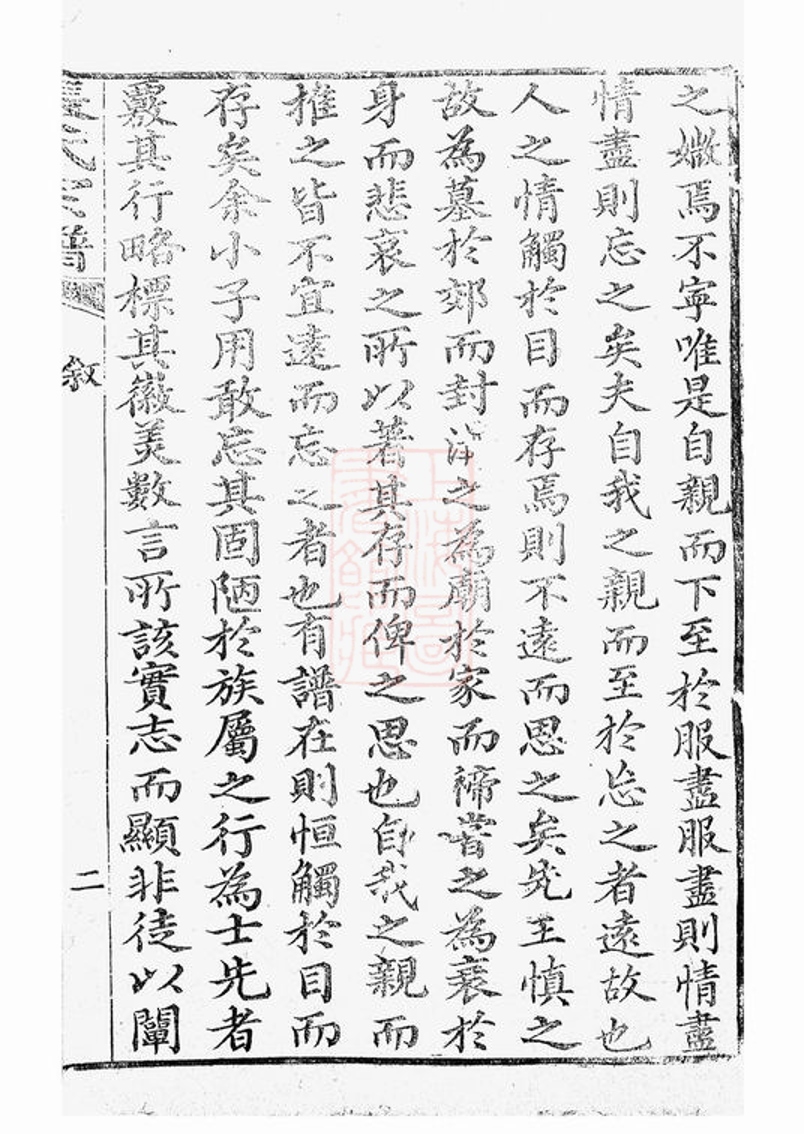 之媺焉不寧唯是自親而下至於服盡服盡則情盡
情盡則忘之矣夫自我之親而至於忘之者遠故也
人之情觸於目而存焉則不遠而思之矣先王慎之
故為墓於郊而封溝之為廟於家而禘嘗之為衰於
身而悲哀之所以著其存而俾之思也自我之親而
推之皆不宜遠而忘之者也有譜在則恒觸於目而
存矣余小子用敢忘其固陋於族屬之行為士先者
覈其行略標其徽美數言所該實志而顯非徒以闡
氏宗譜
敘
二